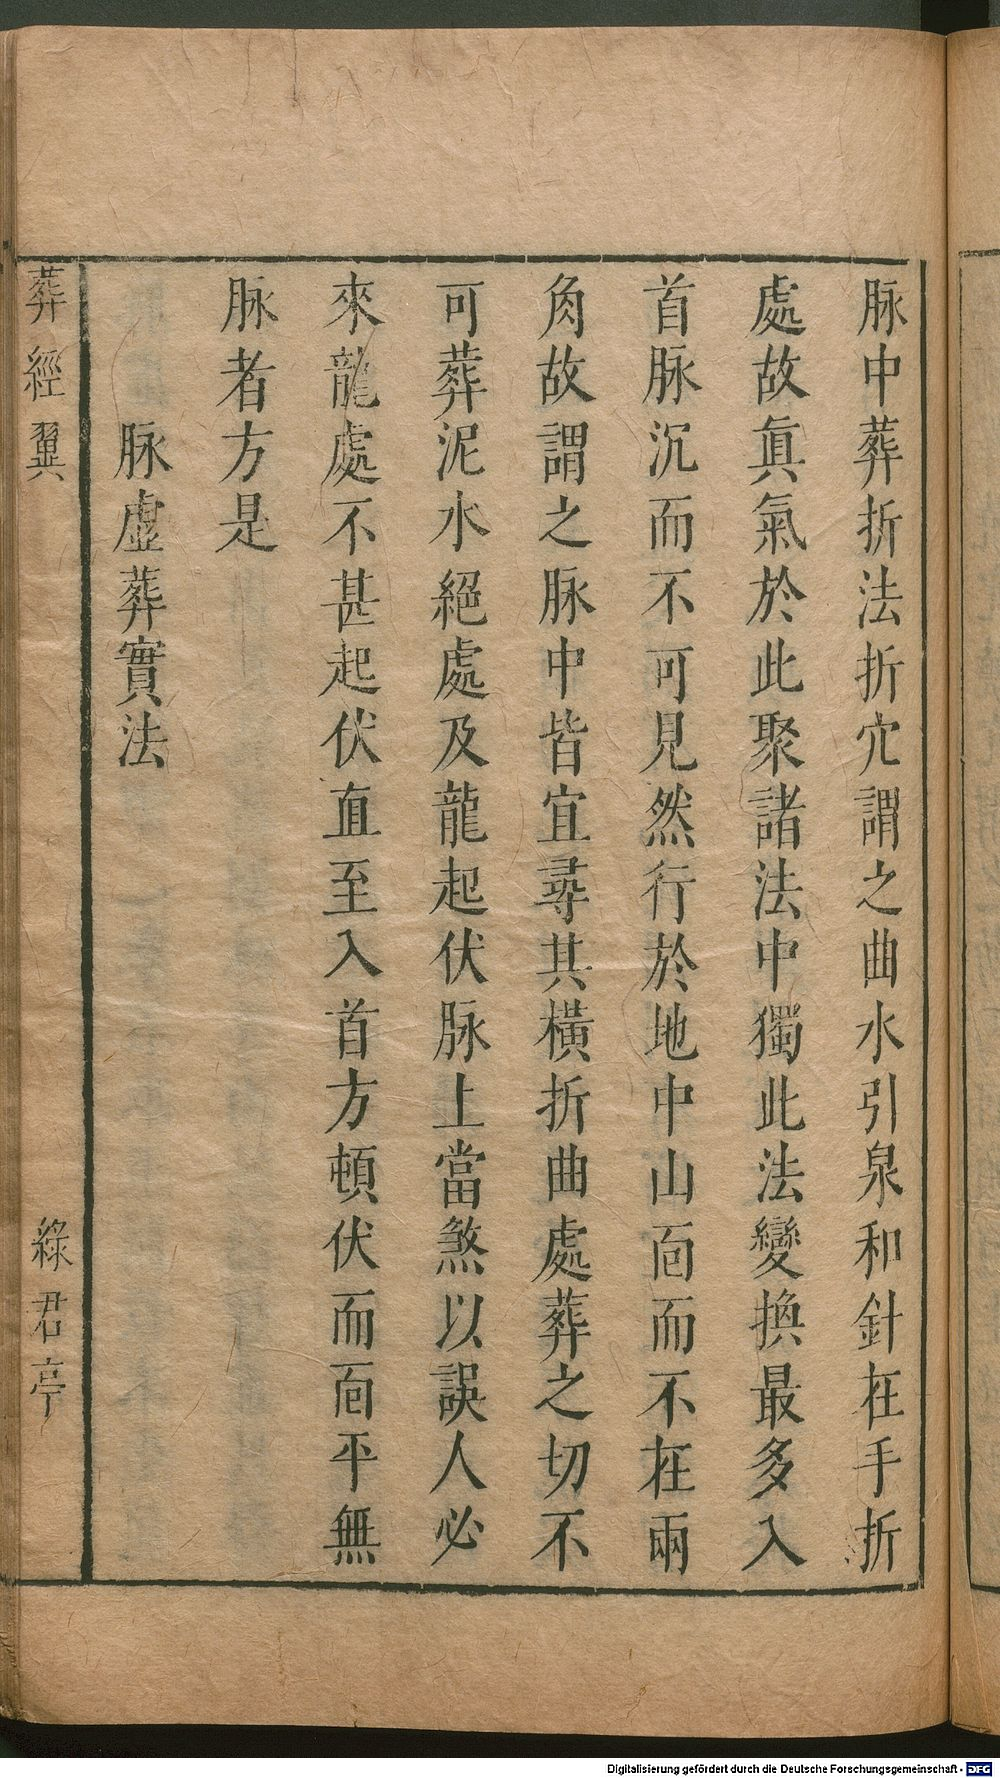 脉中葬折法折穴謂之曲水引泉和針在手折
處故眞氣於此聚諸法中獨此法變換最多入
首脉沉而不可見然行於地中山面而不在兩
角故謂之脉中皆宜尋其橫折曲處葬之切不
可葬泥水絕處及龍起伏脉上當煞以誤人必
來龍處不甚起伏直至入首方頓伏而面平無
脉者方是
脉虛葬實法
葬經翼
綠君亭
Digitalisierung gefördert durch die Deutsche Forschungsgemeinschaft - DFG